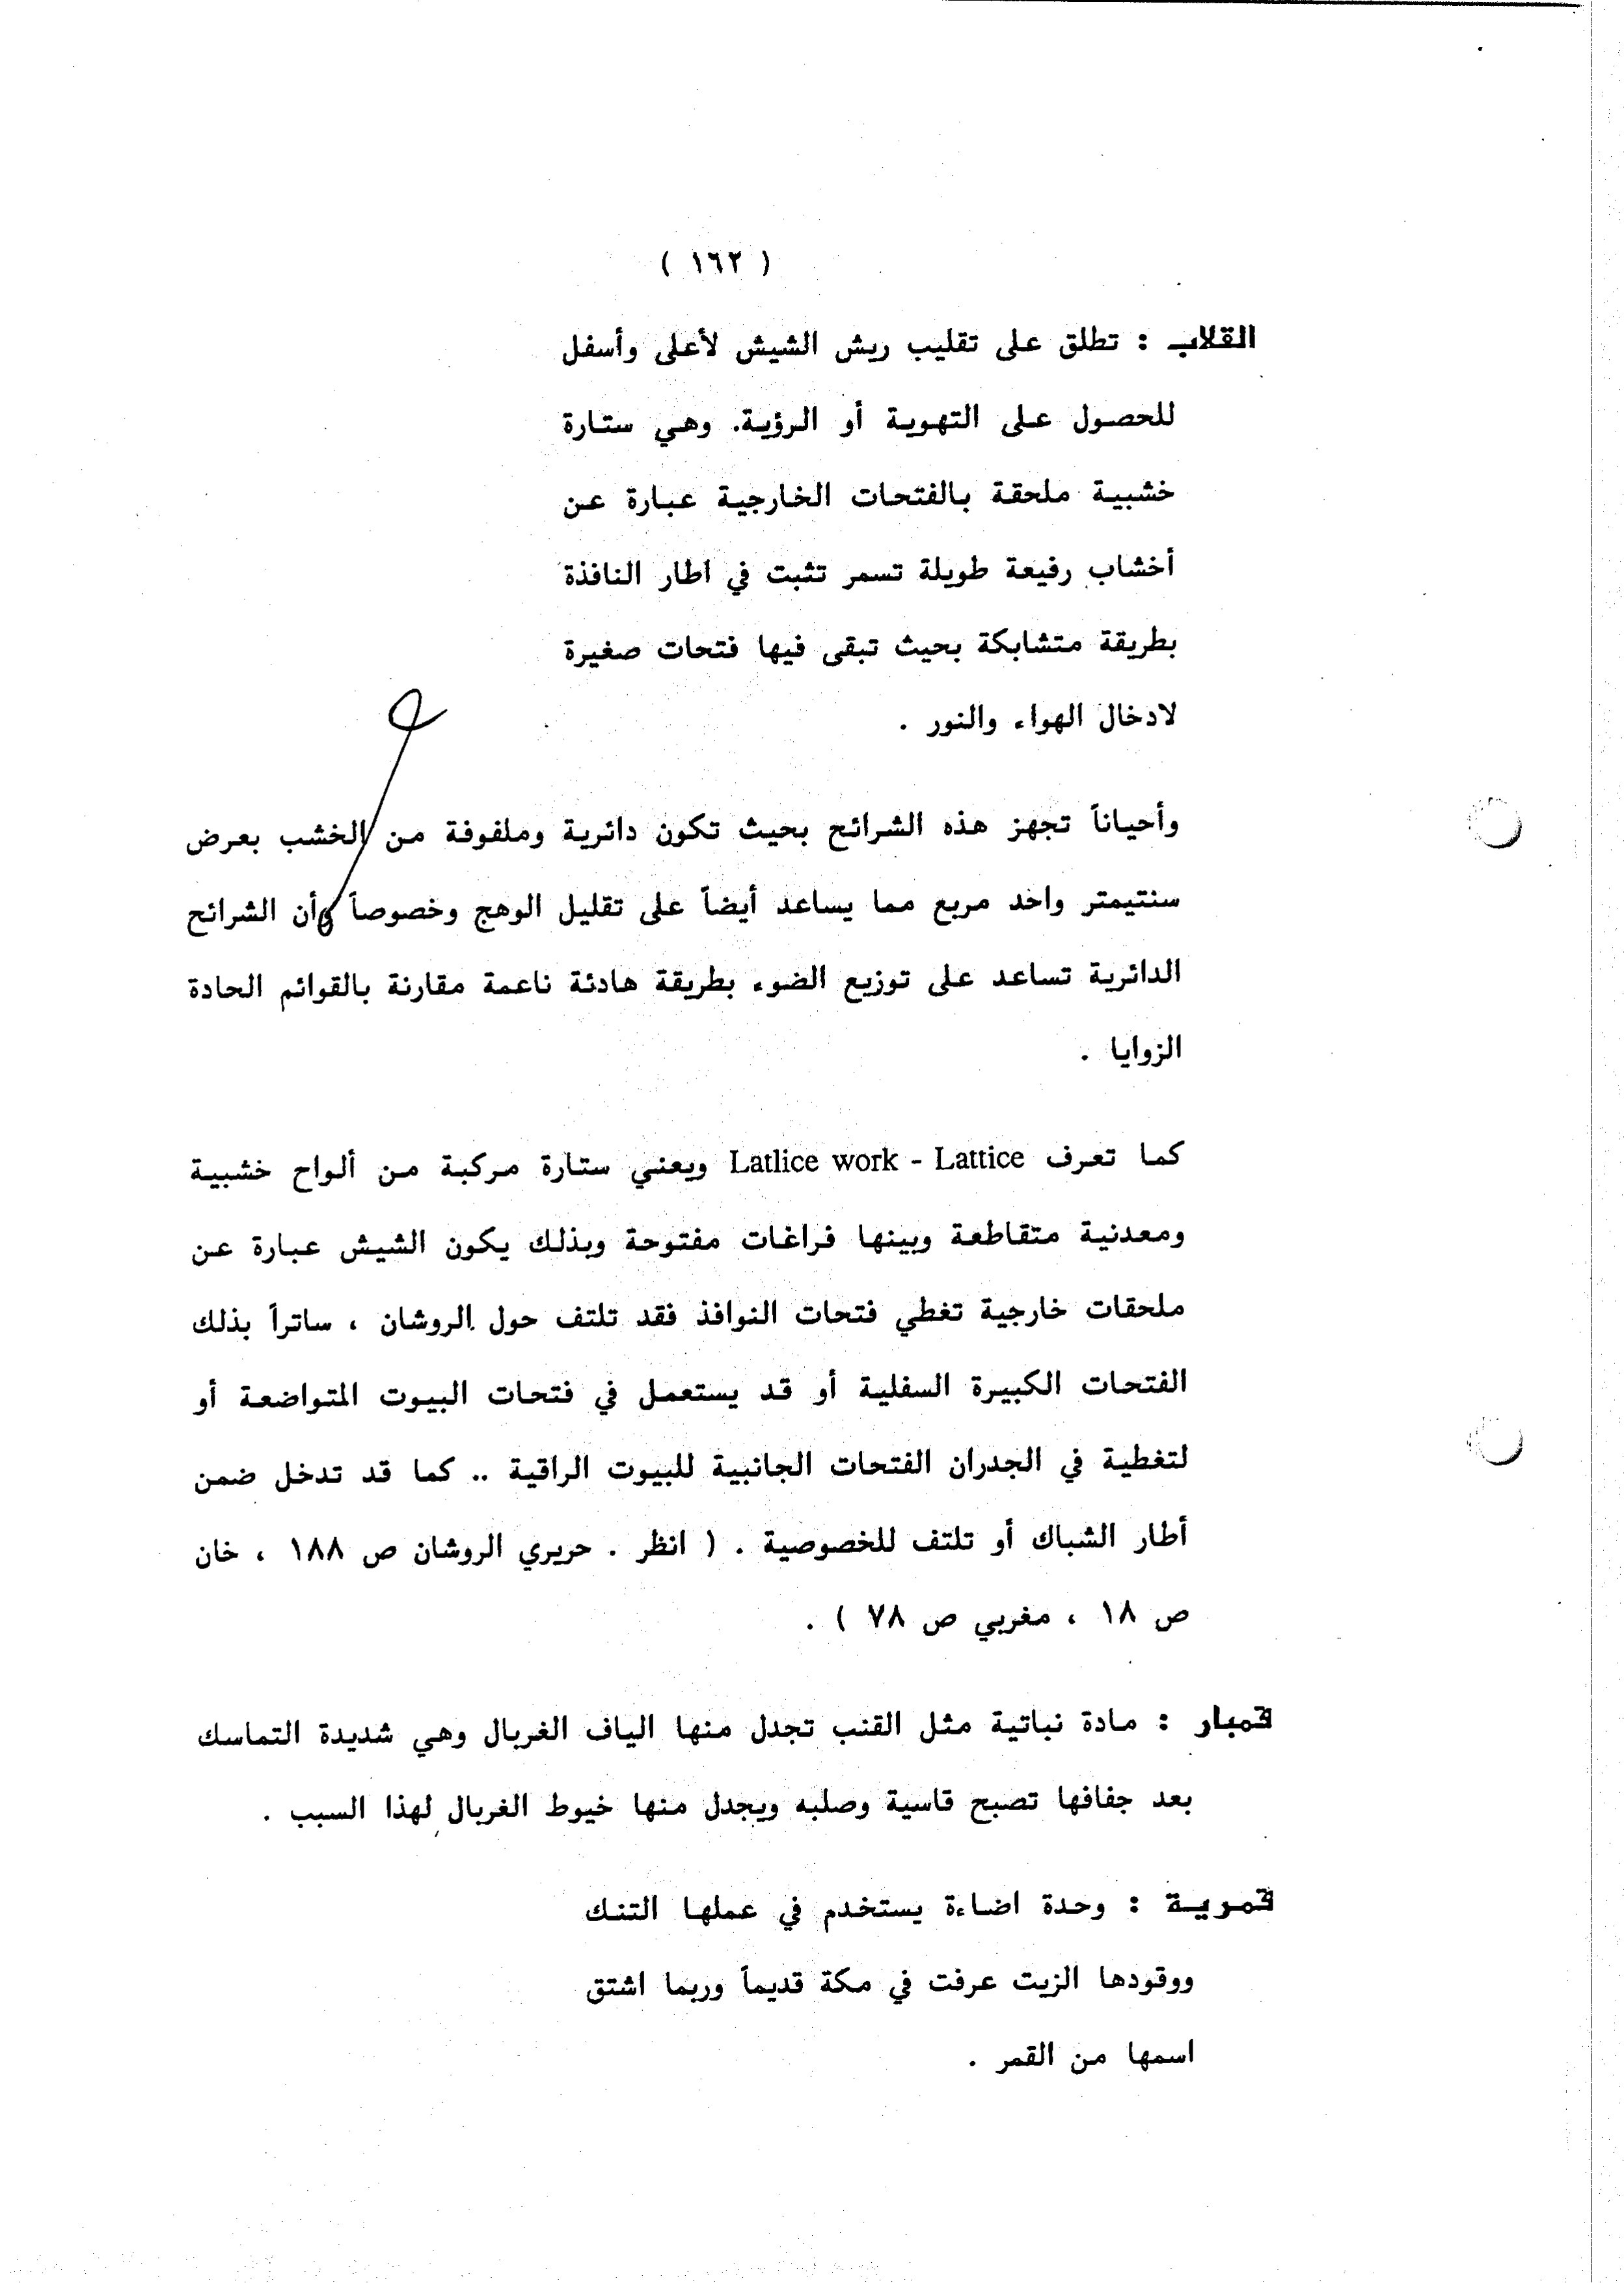 ( ١٦٢ )
القلاب : تطلق على تقليب ريش الشيش لأعلى وأسفل
للحصول على التهوية أو الرؤية. وهي ستارة
خشبية ملحقة بالفتحات الخارجية عبارة عن
أخشاب رفيعة طويلة تسمر تثبت في اطار النافذة
بطريقة متشابكة بحيث تبقى فيها فتحات صغيرة
لادخال الهواء والنور .
وأحياناً تجهز هذه الشرائح بحيث تكون دائرية وملفوفة من الخشب بعرض
سنتيمتر واحد مربع مما يساعد أيضاً على تقليل الوهج وخصوصاً وأن الشرائح
الدائرية تساعد على توزيع الضوء بطريقة هادئة ناعمة مقارنة بالقوائم الحادة
الزوايا .
كما تعرف Latlice work - Lattice ويعني ستارة مركبة من ألواح خشبية
ومعدنية متقاطعة وبينها فراغات مفتوحة وبذلك يكون الشيش عبارة عن
ملحقات خارجية تغطي فتحات النوافذ فقد تلتف حول الروشان ، ساتراً بذلك
الفتحات الكبيرة السفلية أو قد يستعمل في فتحات البيوت المتواضعة أو
لتغطية في الجدران الفتحات الجانبية للبيوت الراقية .. كما قد تدخل ضمن
أطار الشباك أو تلتف للخصوصية . ( انظر . حريري الروشان ص ١٨٨ ، خان
ص ١٨ ، مغربي ص ٧٨ ) .
قمبار : مادة نباتية مثل القنب تجدل منها الياف الغربال وهي شديدة التماسك
بعد جفافها تصبح قاسية وصلبه ويجدل منها خيوط الغربال لهذا السبب .
قمرية : وحدة اضاءة يستخدم في عملها التنك
ووقودها الزيت عرفت في مكة قديماً وربما اشتق
اسمها من القمر .